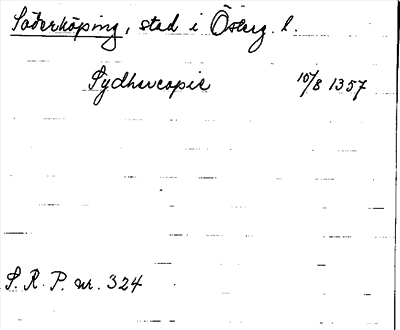 Söderköping, stad i Österg. l.
Sydhercopie 10/8 1357
S. R. P. nr. 324